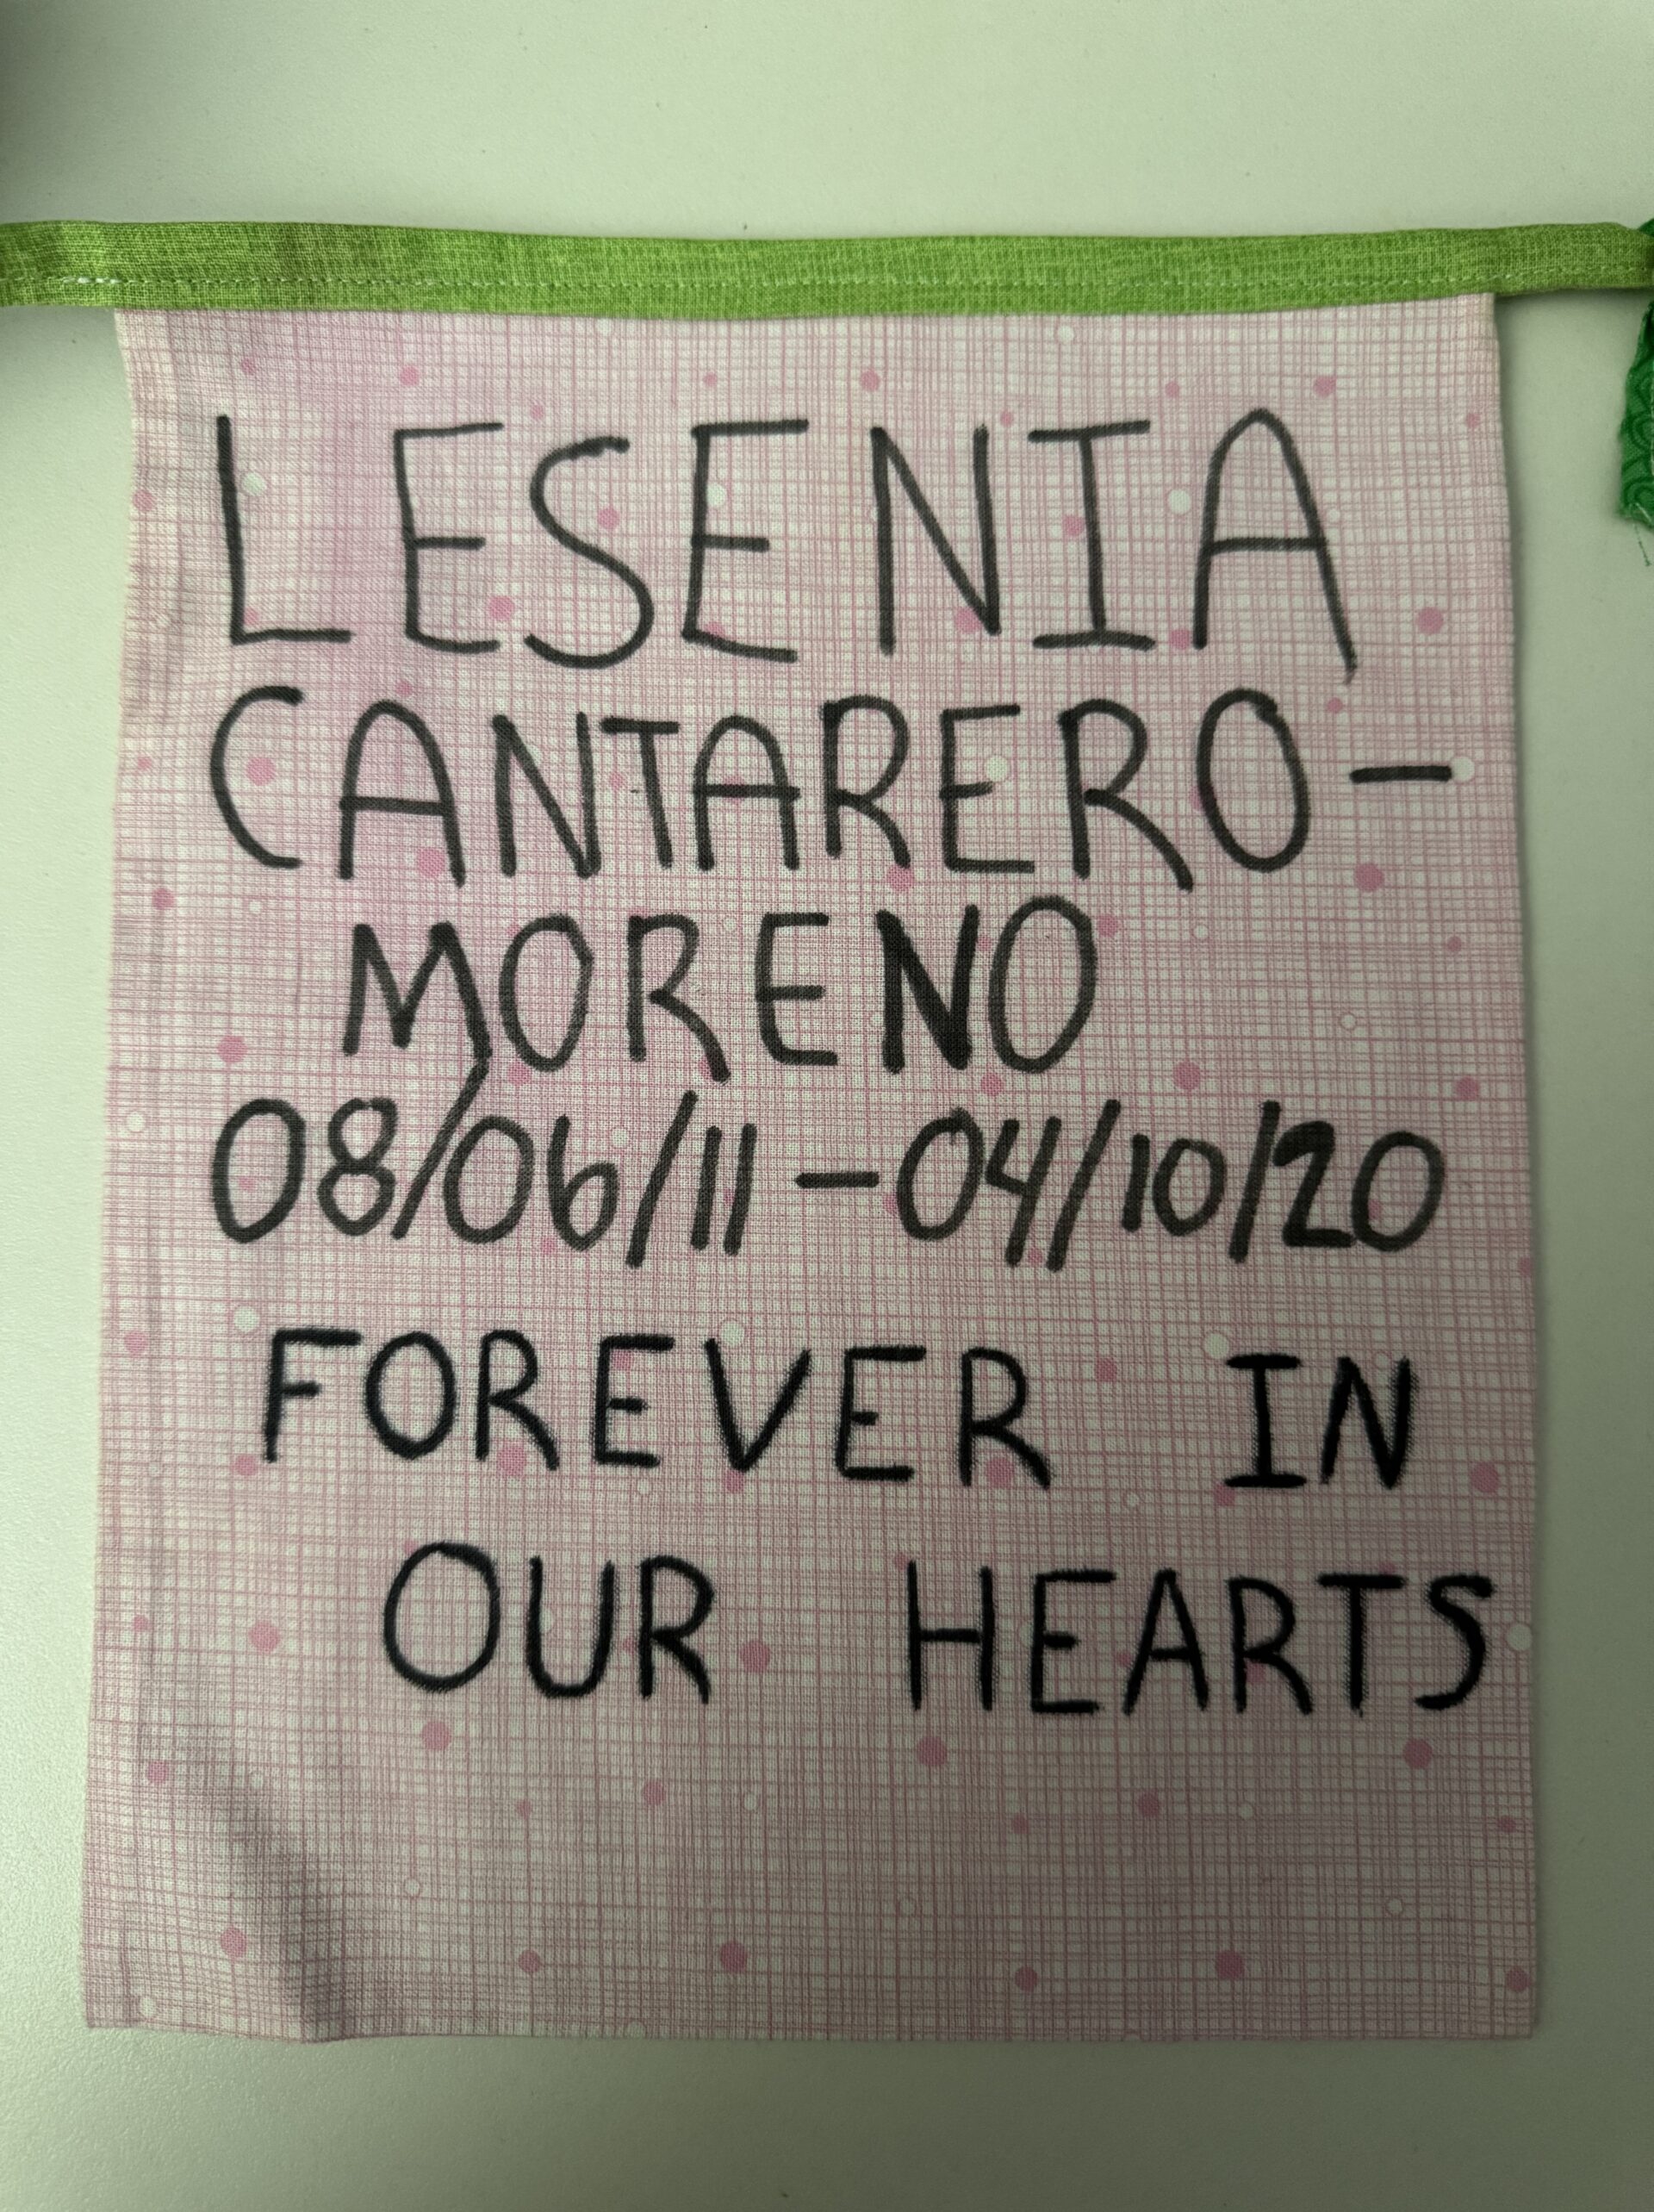 LESENIA
CANTARERO-
MORENO
08/06/11-04/10/20
FOREVER IN
OUR HEARTS